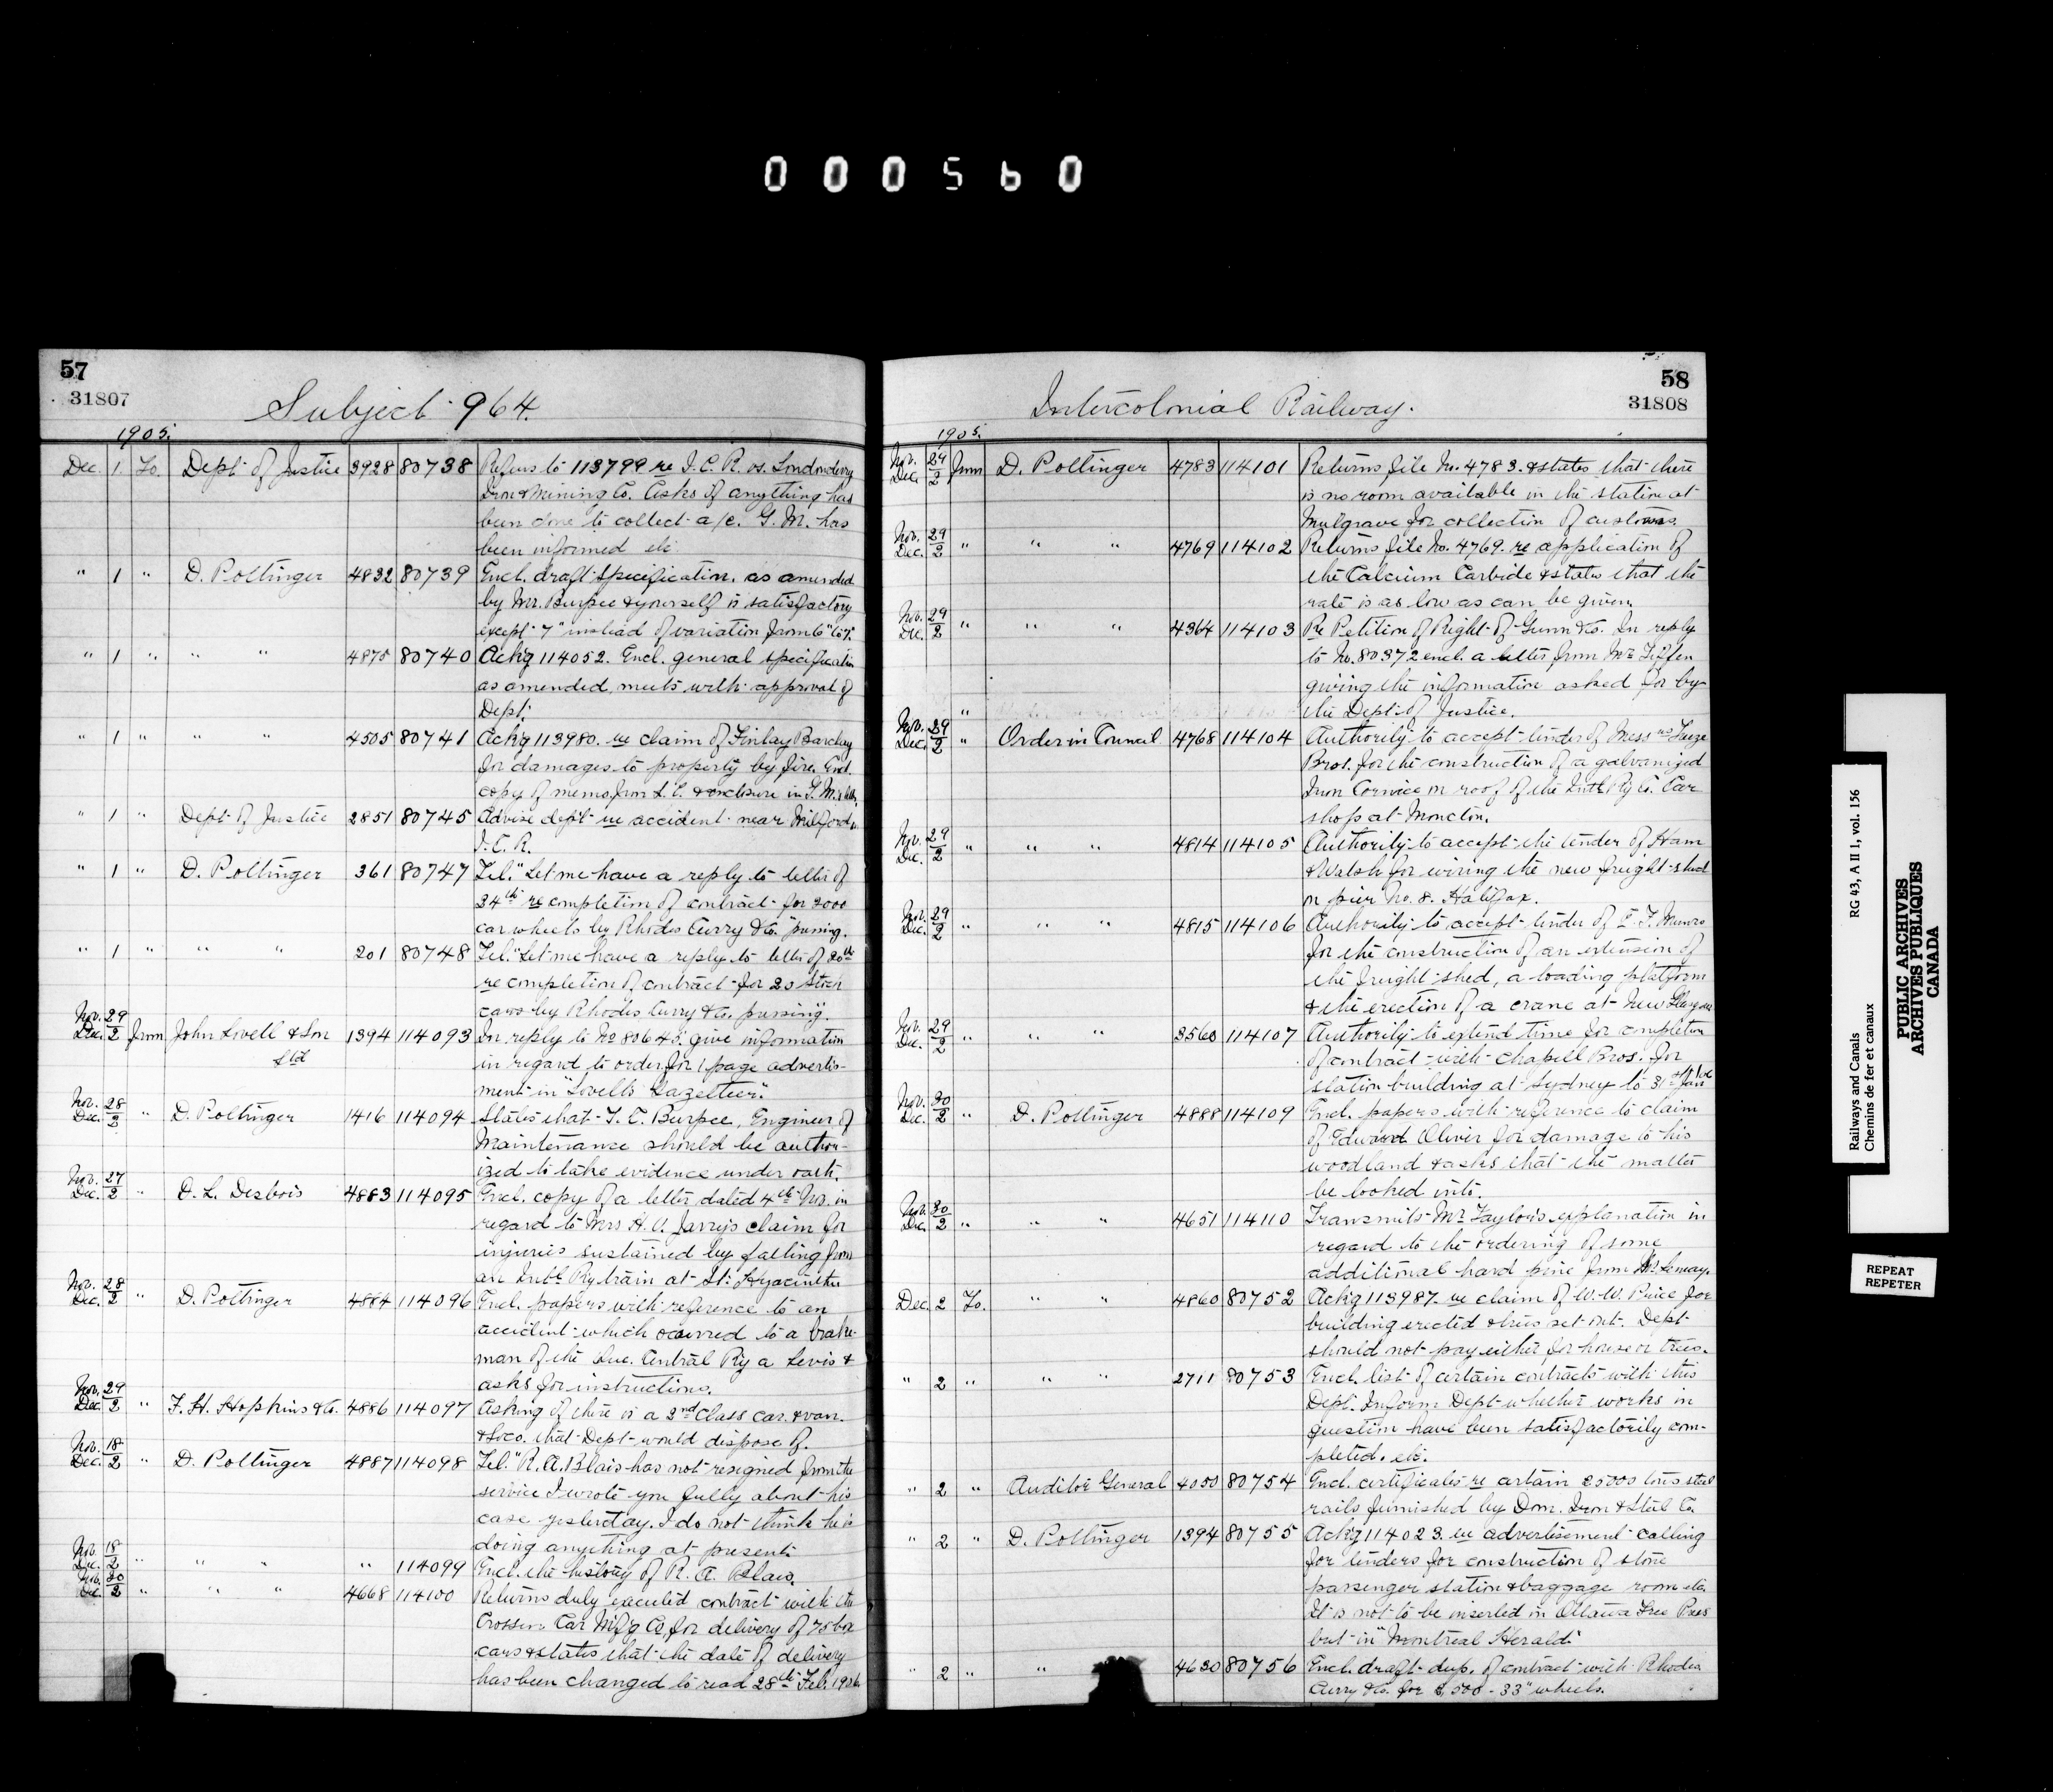 000560
57
31807
Subject 964.
1905.
Dec. 1 To. Dept of Justice 3928 80738 Refers to 113799 re I.C.R. vs. Londonderry
Iron & Mining Co. Asks if anything has
been done to collect a/c. G.M. has
been informed etc.
" 1 " D. Pottinger 4832 80739 Encl. draft specification. as amended
by Mr. Burpee & yourself is satisfactory
except 7" instead of variation from 6" to 7".
" 1 " " " 4875 80740 Ack'g 114052. Encl. general specification
as amended, meets with approval of
Dept.
" 1 " " " 4505 80741 Ack'g 113980. re claim of Finlay Barclay
for damages to property by fire. Encl.
copy of memo from L.C. & enclosure in G.M.'s letter.
" 1 " Dept of Justice 2851 80745 Advise dept re accident near Milford,
I.C.R.
" 1 " D. Pottinger 361 80747 Tel. "Let me have a reply to letter of
24th re completion of contract for 2000
car wheels by Rhodes Curry & Co. pressing."
" 1 " " " 201 80748 Tel. "Let me have a reply to letter of 20th
re completion of contract for 20 stock
cars by Rhodes Curry & Co. pressing".
Nov. 29
Dec. 2 from John Lovell & Son 1394 114093 In reply to No 80645. give information
Ltd in regard to order for 1 page advertis-
ment in "Lovell's Gazetteer".
Nov. 28
Dec. 2 " D. Pottinger 1416 114094 States that T.C. Burpee, Engineer of
Maintenance should be author-
ized to take evidence under oath.
Nov. 27
Dec. 2 " D.L. Desbois 4883 114095 Encl. copy of a letter dated 4th Nov. in
regard to Mrs H.A. Jarry's claim for
injuries sustained by falling from
an Intl. Ry train at St. Hyacinthe
Nov. 28
Dec. 2 " D. Pottinger 4884 114096 Encl. papers with reference to an
accident which occurred to a brake-
man of the Que. Central Ry a Levis &
asks for instructions.
Nov. 29
Dec. 2 " F.H. Hopkins & Co. 4886 114097 Asking if there is a 2nd Class car. & van.
& Loco. that Dept would dispose of.
Nov. 18
Dec. 2 " D. Pottinger 4887 114098 Tel. "R.A. Blais has not resigned from the
service I wrote you fully about his
case yesterday. I do not think he is
doing anything at present.
Nov. 18
Dec. 2 " " " " 114099 Encl. the history of R.A. Blais.
Nov. 30
Dec. 2 " " " 4668 114100 Returns duly executed contract with the
Crossen Car Mf'g Co. for delivery of 75 box
cars & states that the date of delivery
has been changed to read 28th Feb. 1906
58
31808
Intercolonial Railway.
1905.
Nov. 29
Dec. 2 from D. Pottinger 4783 114101 Returns file No. 4783. & states that there
is no room available in the station at
Mulgrave for collection of customs.
Nov. 29
Dec. 2 " " " 4769 114102 Returns file No. 4769. re application of
the Calcium Carbide & states that the
rate is as low as can be given.
Nov. 29
Dec. 2 " " " 4364 114103 Re Petition of Right of Gunn & Co. In reply
to No. 80372 encl. a letter from Mr Tiffin
giving the information asked for by
" the Dept of Justice.
Nov. 29
Dec. 2 " Order in Council 4768 114104 Authority to accept tender of Messrs
Bros. for the construction of a galvanized
Iron Cornice on roof of the Intl. Ry Co. Car
shops at Moncton.
Nov. 29
Dec. 2 " " " 4814 114105 Authority to accept the tender of Ham
& Walsh for wiring the new freight shed
on pier No. 8. Halifax.
Nov. 29
Dec. 2 " " " 4815 114106 Authority to accept tender of Munro
for the construction of an extension of
the freight shed, a loading platform
& the erection of a crane at New Glasgow
Nov. 29
Dec. 2 " " " 3560 114107 Authority to extend time for completion
of contract with Chapell Bros. for
station building at Sydney to 31st Jan
Nov. 30
Dec. 2 " D. Pottinger 4888 114109 Encl. papers with reference to claim
of Edward Oliver for damage to his
woodland & asks that the matter
be looked into.
Nov. 30
Dec. 2 " " " 4651 114110 Transmits Mr Taylor's explanation in
regard to the ordering of some
additional hard pine from Mr. Lemay.
Dec. 2 To. " " 4860 80752 Ack'g 113987. re claim of W.W. Price for
building erected & trees set out. Dept
should not pay either for house or trees.
" 2 " " " 2711 80753 Encl. list of certain contracts with this
Dept. Inform Dept whether works in
question have been satisfactorily com-
pleted. etc.
" 2 " Auditor General 4050 80754 Encl. certificates re certain 25000 tons steel
rails furnished by Dom. Iron & Steel Co.
" 2 " D. Pottinger 1394 80755 Ack'g 114023. re advertisement calling
for tenders for construction of stone
passenger station & baggage room etc.
It is not to be inserted in Ottawa Free Press
but in "Montreal Herald."
" 2 " " 4630 80756 Encl. draft dup. of contract with Rhodes
Curry & Co. for 3,500 - 33" wheels.
Railways and Canals RG 43, A II 1, vol. 156
Chemins de fer et canaux
PUBLIC ARCHIVES
ARCHIVES PUBLIQUES
CANADA
REPEAT
REPETER